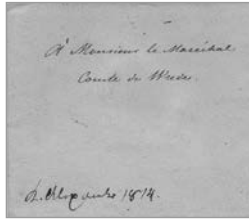 A Monsieur le Maréchal
Comte de Wrede.
Alexandre 1814.